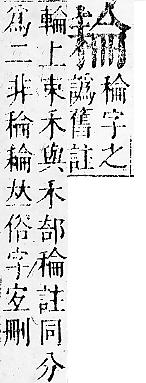 耣
稐字之
譌舊註
輪上束禾與禾部稐註同分
為二非稐耣𠀤俗字宐刪